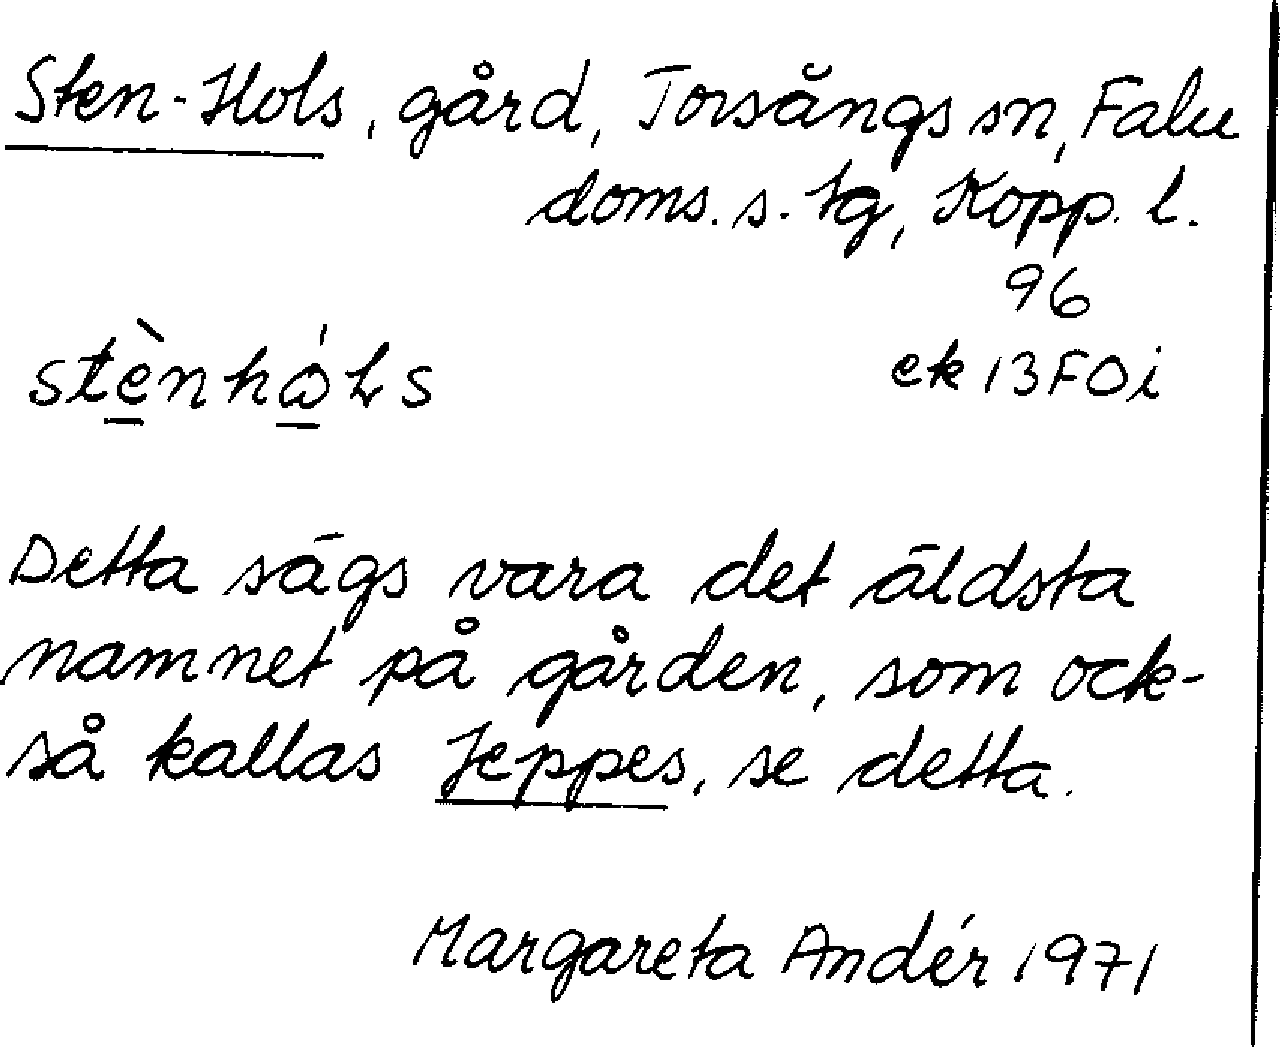 Sten-Hols, gård, Torsångs sn, Falu
doms. s. tg, Kopp. l.
96
stènhóLs ek 13F0i
Detta sägs vara det äldsta
namnet på gården, som ock-
så kallas Jeppes, se detta.
Margareta Andér 1971